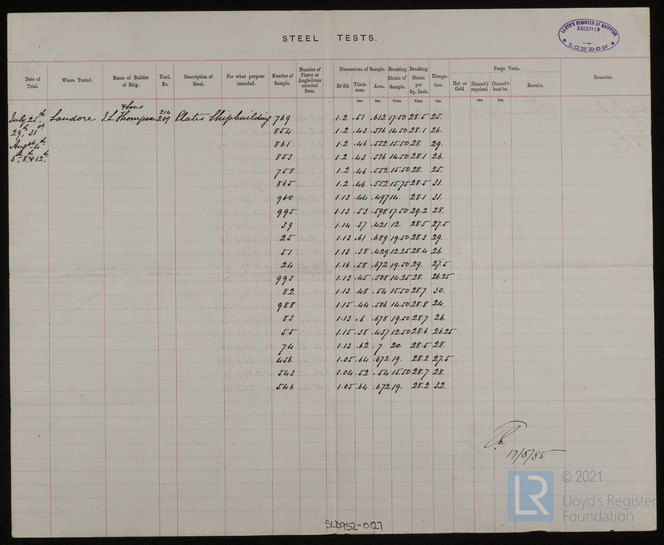 STEEL TESTS.
LLOYD'S REGISTER OF SHIPPING
RECEIVED
LONDON
Date of Trial. Where Tested. Name of Builder of Ship. Yard. No. Description of Steel. For what purpose intended. Number of Sample. Number of Plates or Angle Irons selected from. Dimensions of Sample. Br'dth Thickness. Area. Breaking Strain of Sample. Breaking Strain per Sq. Inch. Elongation. Forge Tests. Hot or Cold Diamet'r required Diamet'r bent to. Results. Remarks.
Ins. Ins. Ins. Tons. Tons. Ins. Ins. Ins.
& Sons 210
July 25th Landore J. L. Thompson 209 Plates Shipbuilding 769 1.2 .51 .612 17.50 28.5 25.
29th 31st 854 1.2 .43 .516 14.50 28.1 26.
Augst 4th 861 1.2 .46 .552 15.50 28 29.
6th 8th & 12th 853 1.2 .43 .516 14.50 28.1 26.
758 1.2 .46 .552 15.50 28. 25.
865 1.2 .46 .552 15.75 28.5 31.
960 1.13 .44 .497 14. 28.1 31.
995 1.13 .53 .598 17.50 29.2 28.
39 1.14 .37 .421 12. 28.5 27.5
25 1.13 .61 .689 19.50 28.3 29.
51 1.13 .38 .429 12.25 28.4 26.
24 1.16 .58 .672 19.50 29. 27.5
993 1.13 .45 .508 14.25 28. 26.25
82 1.13 .48 .54 15.50 28.7 30.
988 1.15 .44 .506 14.50 28.8 24.
83 1.13 .6 .678 19.50 28.7 26.
55 1.15 .38 .437 12.50 28.6 26.25
74 1.13 .62 .7 20. 28.5 28.
456 1.05 .64 .672 19. 28.2 27.5
543 1.04 .52 .54 15.50 28.7 28.
546 1.05 .64 .672 19. 28.2 32.
17/8/85
© 2021
LR Lloyd's Register
Foundation
SLD952-0127